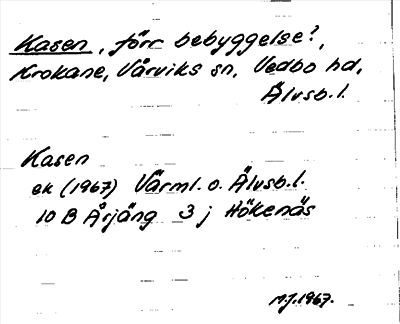 Kasen, förr bebyggelse?,
Krokane, Vårviks sn, Vedbo hd,
Älvsb. l.
Kasen
ek (1967) Värml. o. Älvsb. l.
10 B Årjäng 3 j Hökenäs
MJ. 1967.